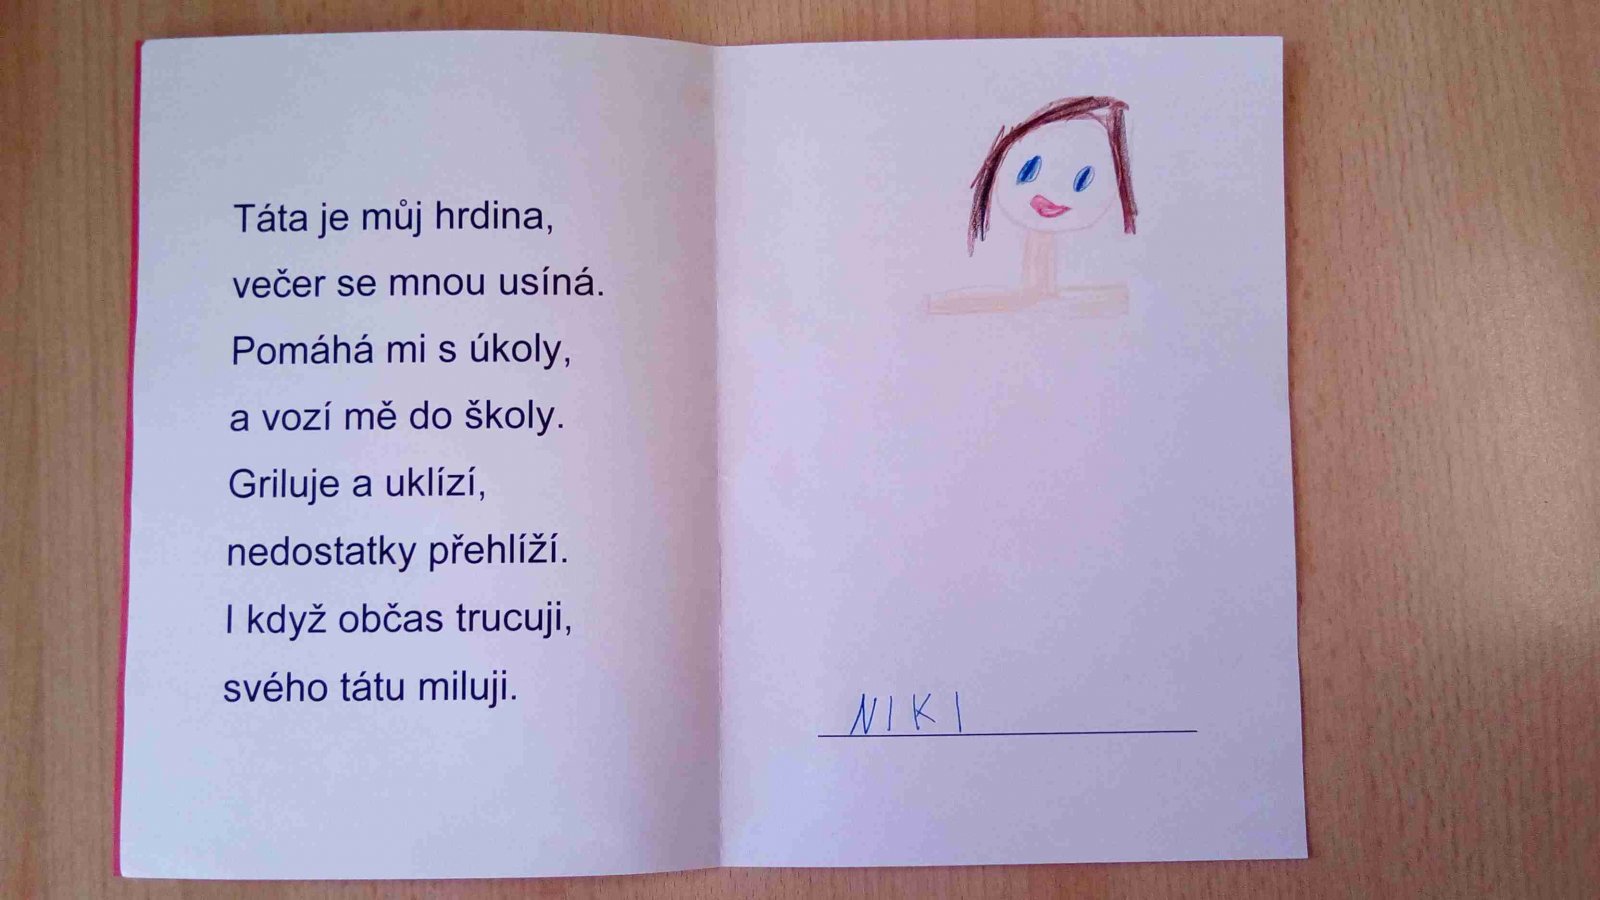 Táta je můj hrdina,
večer se mnou usíná.
Pomáhá mi s úkoly,
a vozí mě do školy.
Griluje a uklízí,
nedostatky přehlíží.
I když občas trucuji,
svého tátu miluji.
NIKI